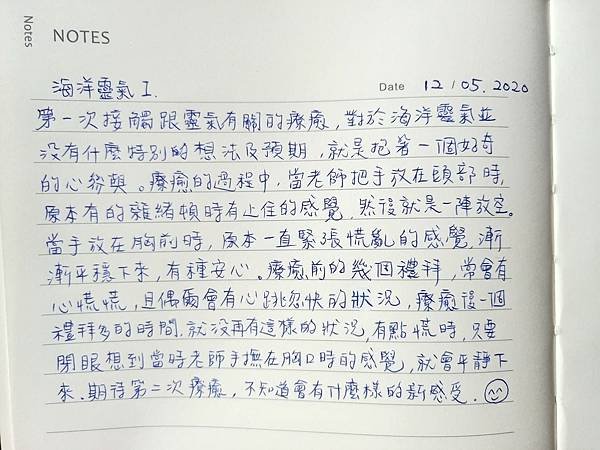 Notes
NOTES
海洋靈氣 I.
Date 12/05.2020
第一次接觸跟靈氣有關的療癒，對於海洋靈氣並
沒有什麼特別的想法及預期，就是抱著一個好奇
的心參與。療癒的過程中，當老師把手放在頭部時，
原本有的雜緒頓時有止住的感覺，然後就是一陣放空。
當手放在胸前時，原本一直緊張慌亂的感覺，漸
漸平穩下來，有種安心。療癒前的幾個禮拜，常會有
心慌慌，且偶爾會有心跳忽快的狀況，療癒後一個
禮拜多的時間，就沒再有這樣的狀況，有點慌時，只要
閉眼想到當時老師手撫在胸口時的感覺，就會平靜下
來．期待第二次療癒，不知道會有什麼樣的新感受．